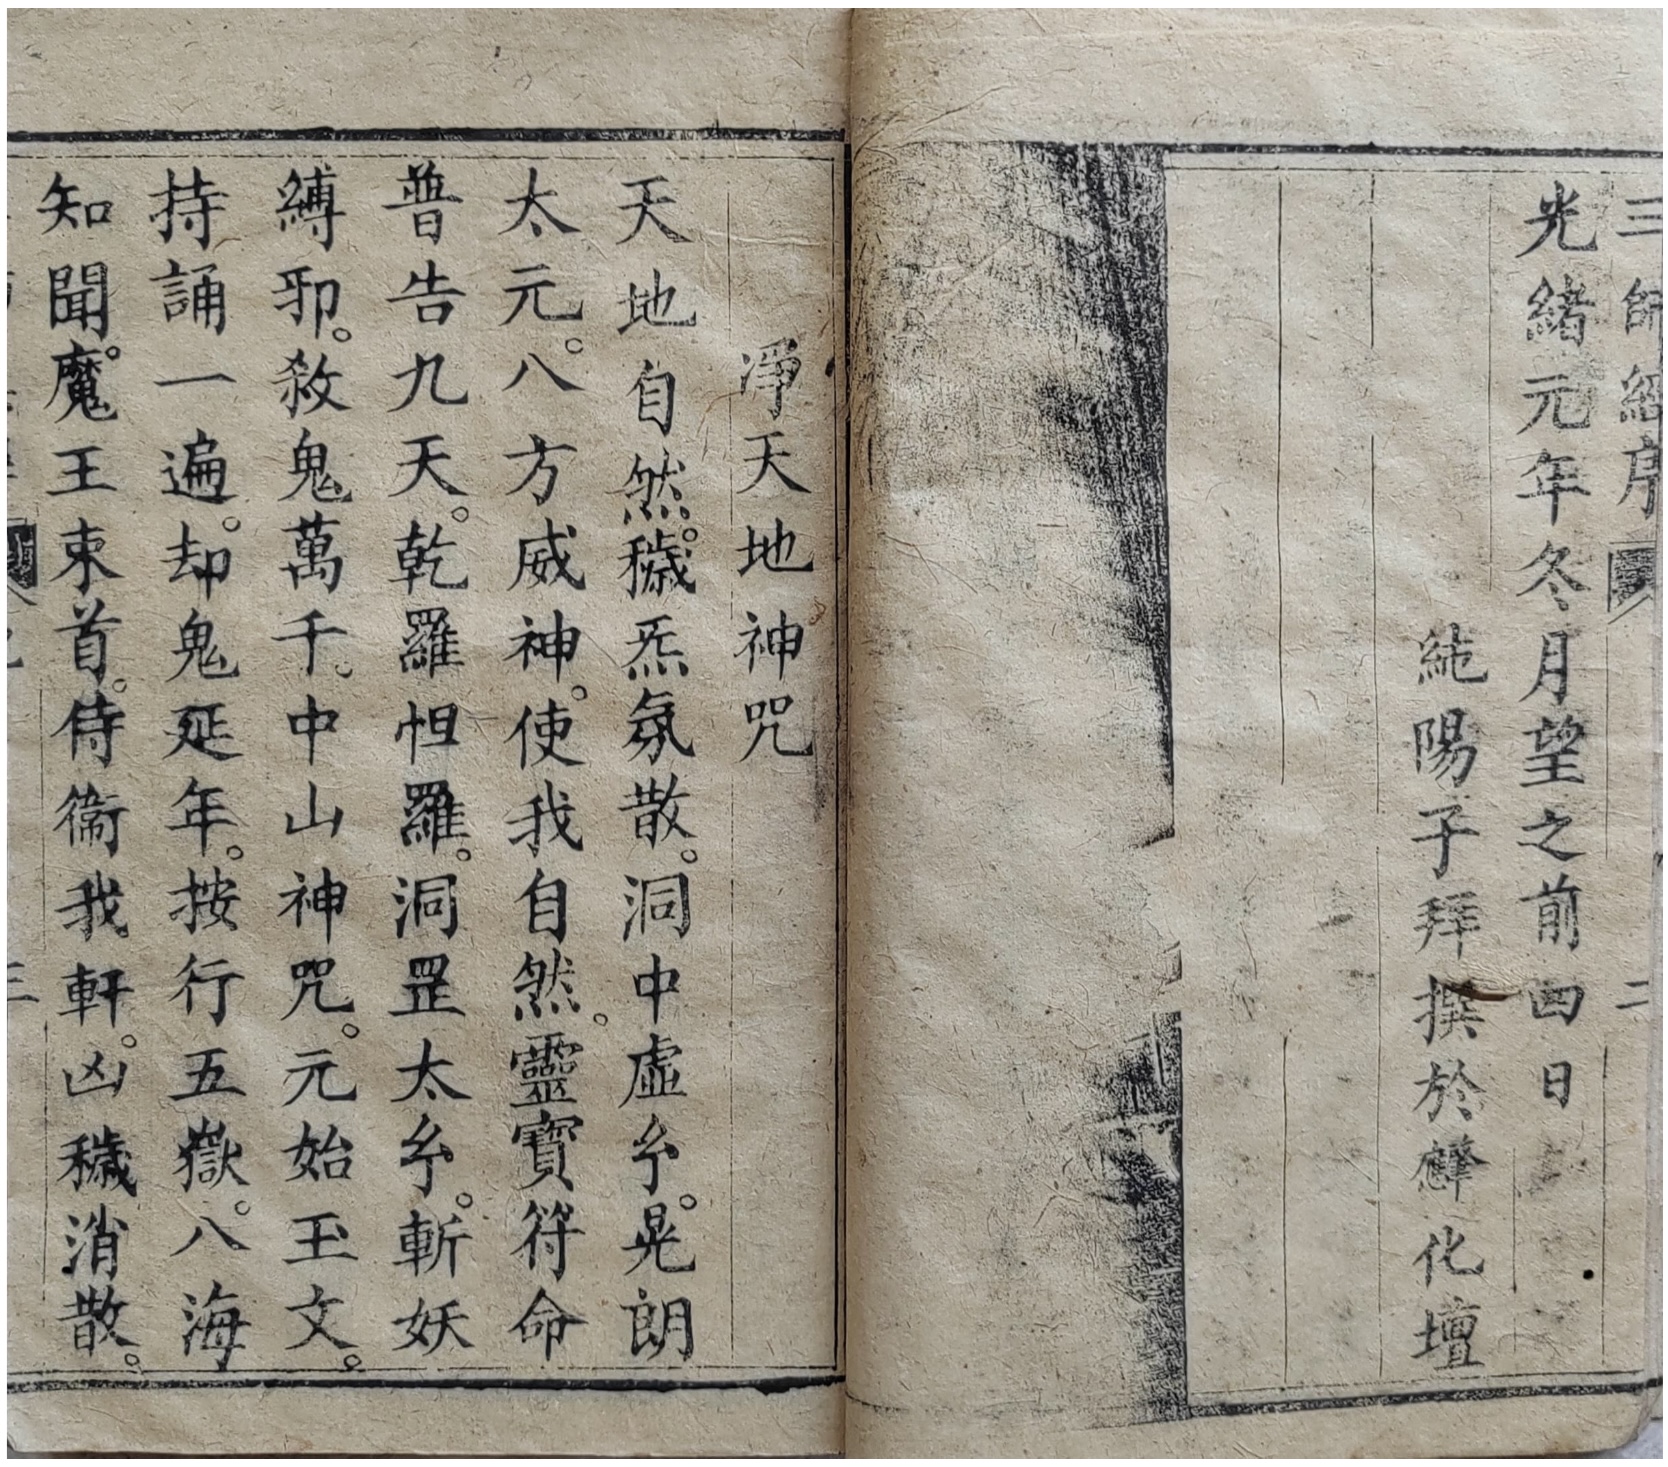 三師經序 二
光緒元年冬月望之前四日
純陽子拜撰於化壇
淨天地神咒
天地自然。穢炁氛散。洞中虛玄。晃朗
太元。八方威神。使我自然。靈寶符命
普告九天。乾羅怛羅。洞罡太玄。斬妖
縛邪。殺鬼萬千。中山神咒。元始玉文。
持誦一遍。却鬼延年。按行五嶽。八海
知聞。魔王束首。侍衞我軒。凶穢消散。
三